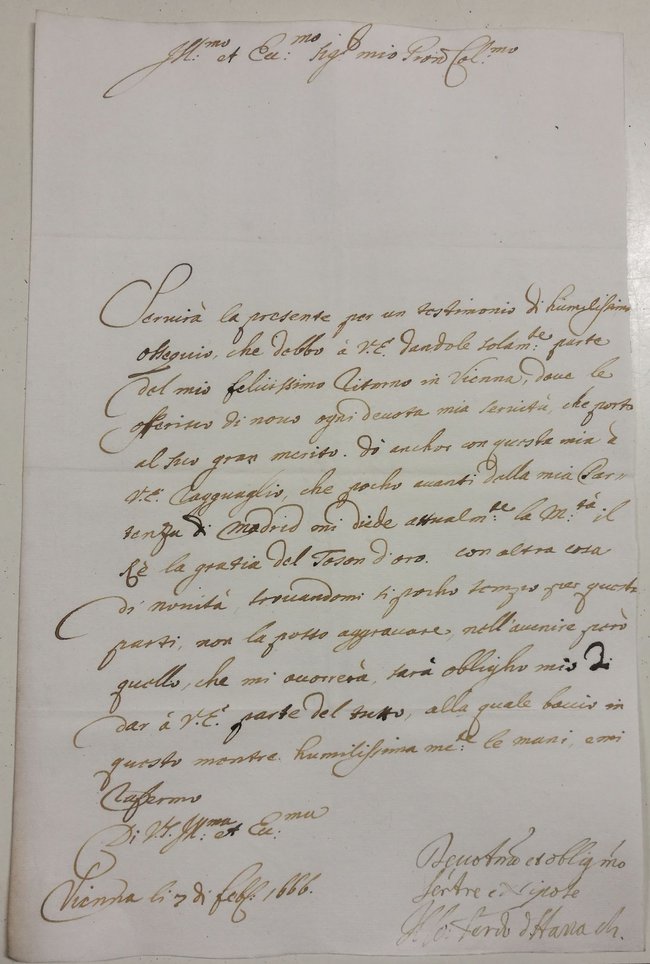 Ill:mo et Ecc:mo Sigr mio Pron Col:mo
Servirà la presente per un testimonio di humilissimo
ossequio, che debbo à V.E. dandole solam:te parte
del mio felicissimo ritorno in Vienna, dove le
offerisco di novo ogni devota mia servitù, che porto
al suo gran merito. Dò anchor con questa mia à
V.E. ragguaglio, che pocho avanti della mia Par
tenza di Madrid mi diede attualm:te la M:tà il
Rè la gratia del Toson d'oro. con altra cosa
di novità, trovandomi sì pocho tempo per queste
parti, non la posso aggravare, nell'avenire però
quello, che mi occorrerà, sarà oblighо mio di
dar à V.E. parte del tutto, alla quale baccio in
questo mentre humilissimame:te le mani, e mi
rafermo
Di V.E. Ill:ma et Ecc:ma
Vienna li 7 di feb: 1666.
Devotmo et obligmo
Sertre e Nipote
Ferd d'Harrach.